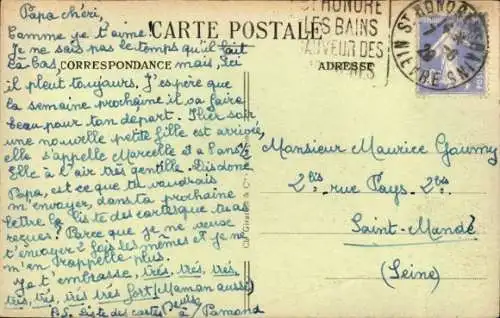 Papa chéri,
Comme je t'aime!
Je ne sais pas le temps qu'il fait
là-bas, mais, ici
il pleut toujours. J'espère que
la semaine prochaine il va faire
beau pour ton départ. Hier soir
une nouvelle petite fille est arrivée,
elle s'appelle Marcelle et a 8 ans½
Elle à l'air très gentille. Dis donc
Papa, est ce que tu voudrais
m'envoyer, dans ta prochaine
lettre la liste des cartes que tu as
reçues? Parce que je ne veux
t'envoyer 2 fois les mêmes et je ne
m'en rappelle plus.
Je t'embrasse, trés, trés, trés,
trés, trés, trés trés fort (Maman aussi)
P.S. Liste des cartes à
CARTE POSTALE
CORRESPONDANCE
ADRESSE
ST HONORÉ
LES BAINS
SAUVEUR DES
ST HONORE
NIEVRE
Monsieur Maurice
2bis rue Pays 2bis
Saint-Mandé
(Seine)